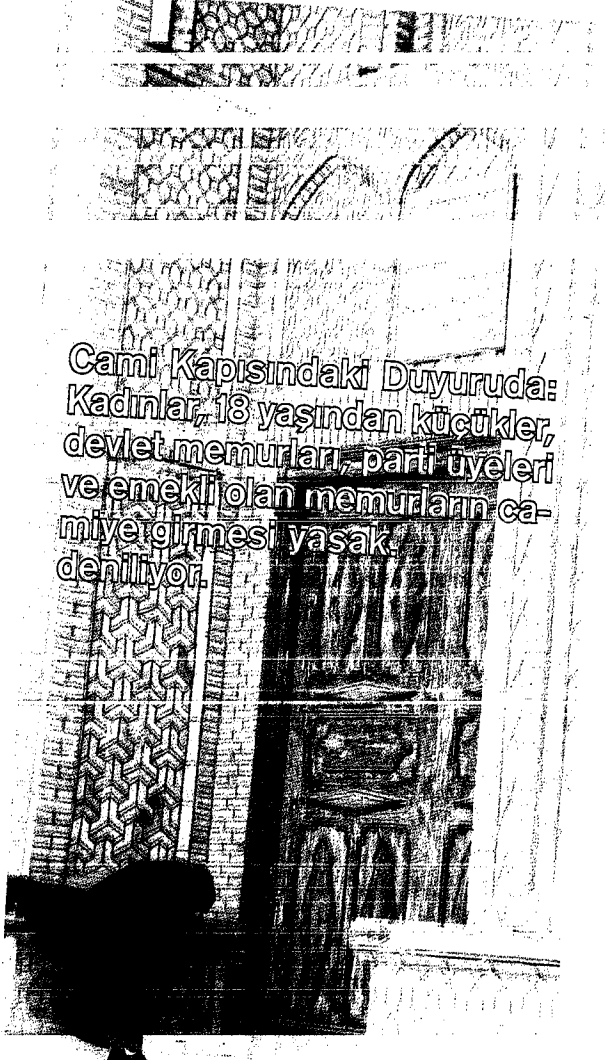 Cami Kapısındaki Duyuruda:
Kadınlar, 18 yaşından küçükler,
devlet memurları, parti üyeleri
ve emekli olan memurların ca-
miye girmesi yasak.
deniliyor.